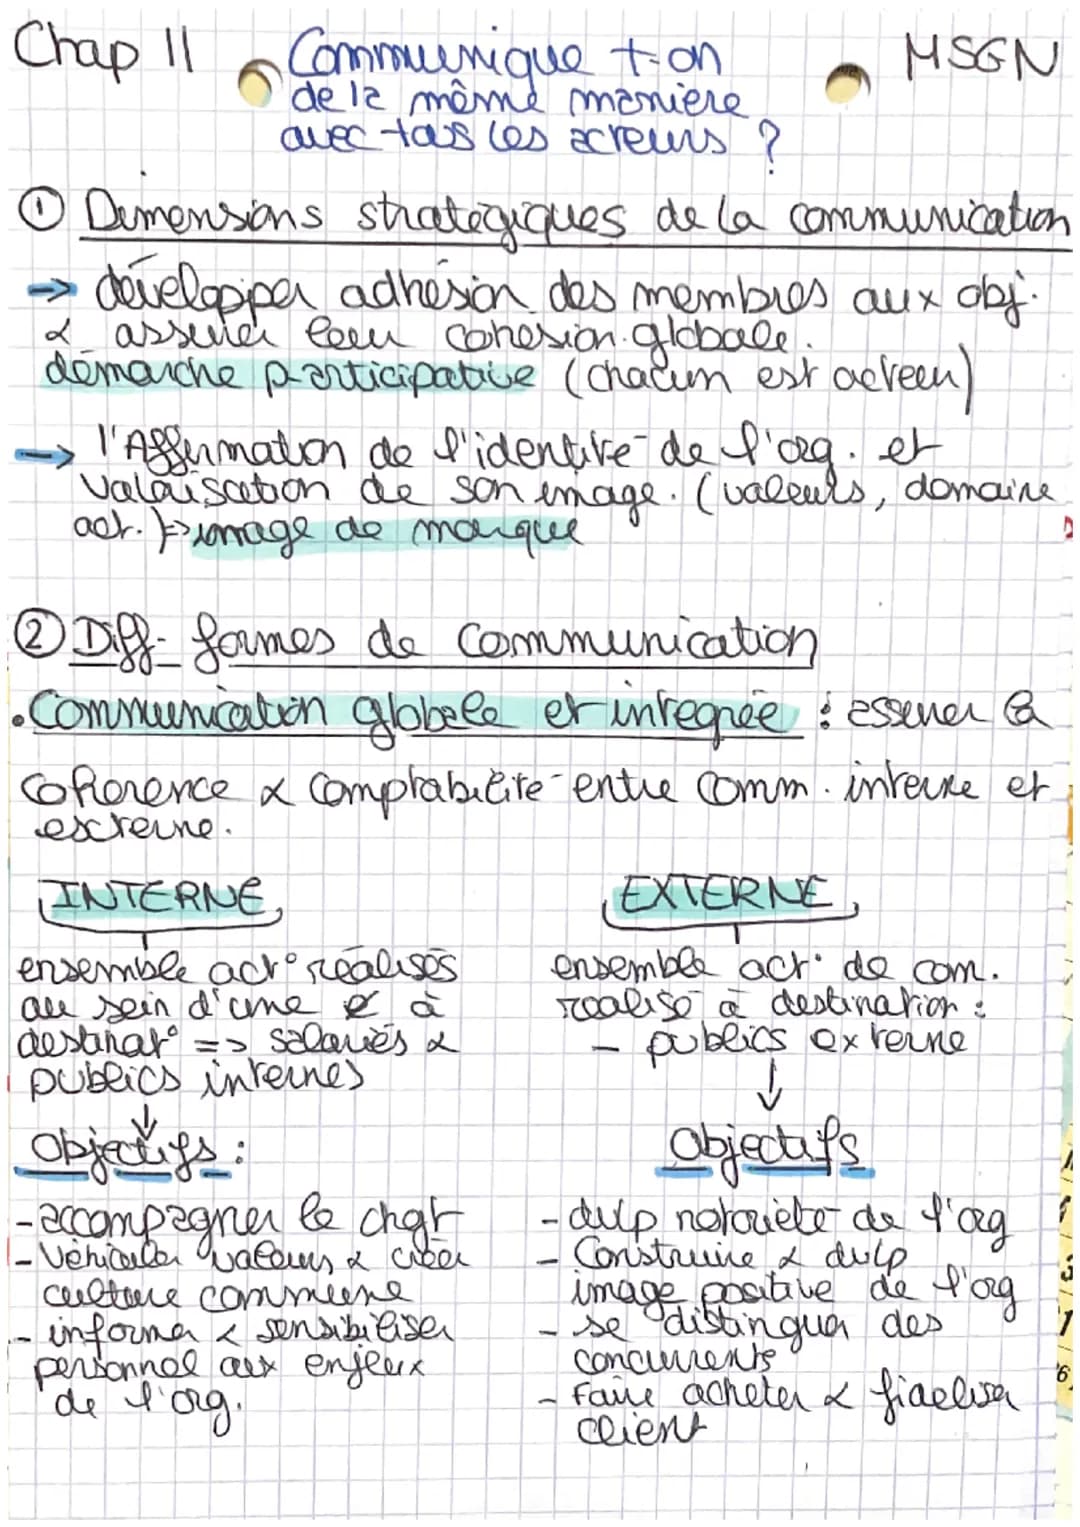 Chap 11
Communique t-on
de la même manière
avec tous les acteurs ?
MSGN
① Dimensions stratégiques de la communication
→ développer adhésion des membres aux obj.
& assurer leur cohésion globale.
démarche participative (chacun est acteur)
→ l'Affirmation de l'identité de l'org. et
valorisation de son image. (valeurs, domaine
act.) → image de marque
② Diff- formes de communication
• Communication globale et intégrée : assurer la
cohérence & comptabilité entre comm. interne et
externe.
INTERNE
ensemble act° réalisés
au sein d'une e à
destinat° => salariés &
publics internes
↓
Objectifs :
- accompagner le chgt
- véhiculer valeurs & créer
culture commune
- informer & sensibiliser
personnel aux enjeux
de l'org.
EXTERNE
ensemble act° de com.
réalisé à destination :
- publics externe
↓
Objectifs
- dvlp notoriété de l'org
- Construire & dvlp
image positive de l'org
- se distinguer des
concurrents
- Faire acheter & fidéliser
client